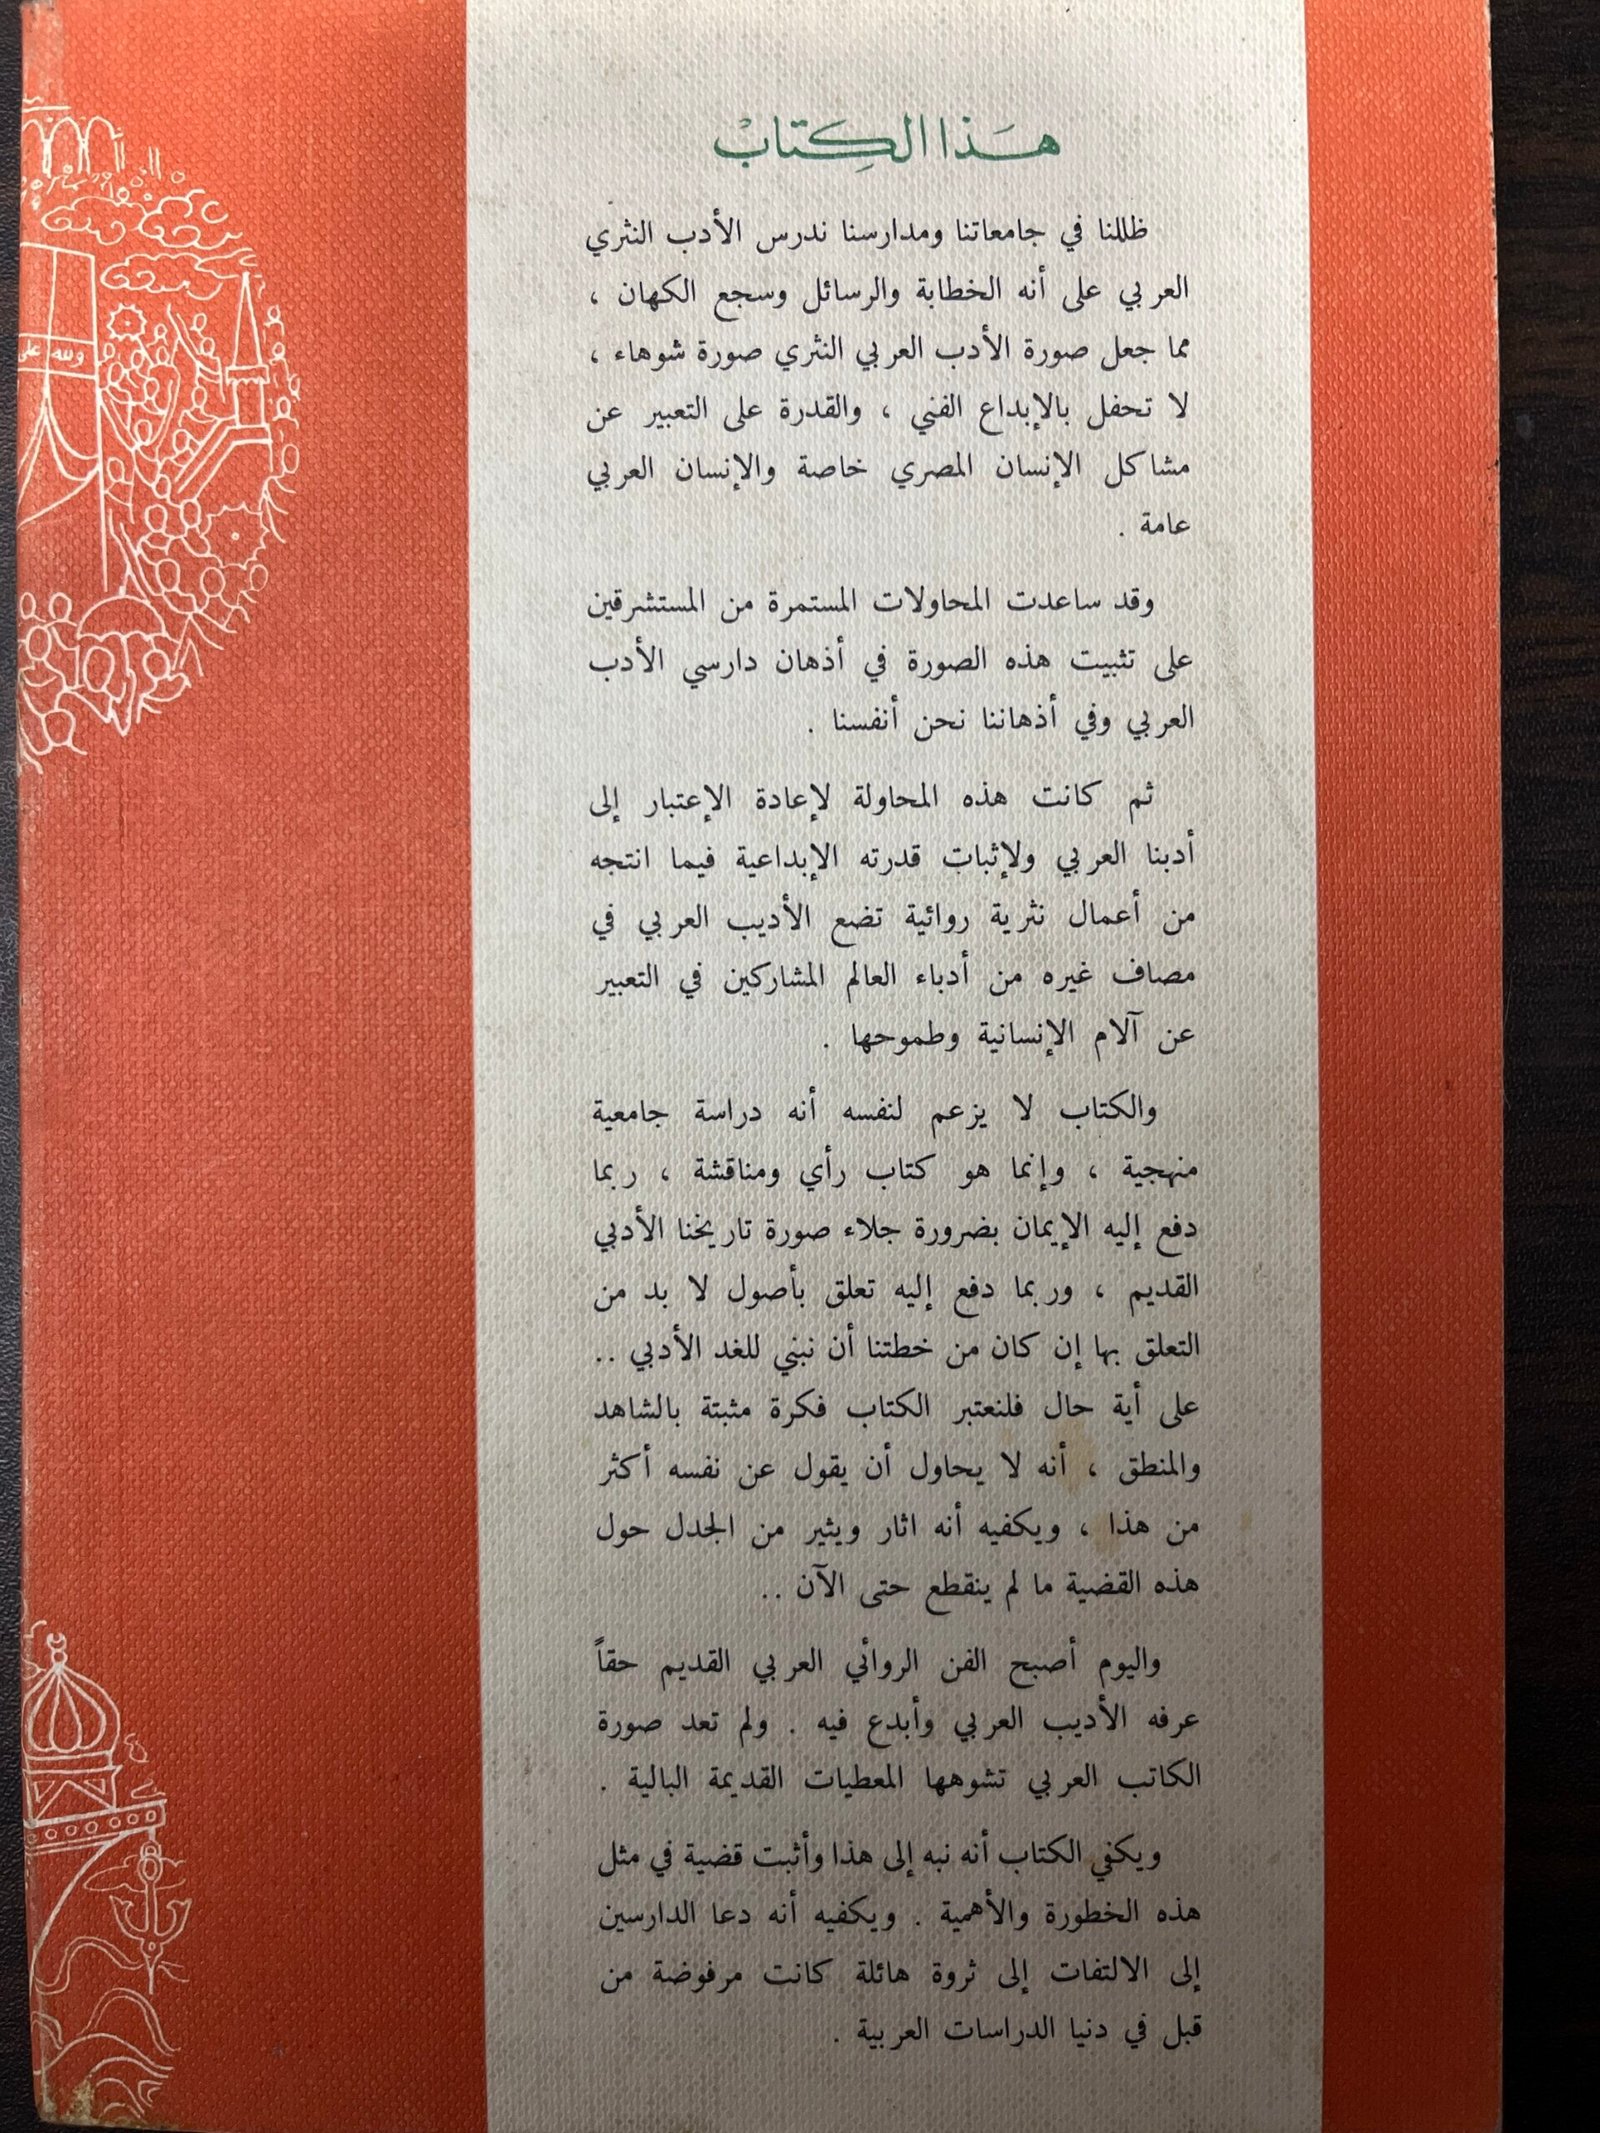 هذا الكتاب
ظللنا في جامعاتنا ومدارسنا ندرس الأدب النثري
العربي على أنه الخطابة والرسائل وسجع الكهان ،
مما جعل صورة الأدب العربي النثري صورة شوهاء ،
لا تحفل بالإبداع الفني ، والقدرة على التعبير عن
مشاكل الإنسان المصري خاصة والإنسان العربي
عامة .
وقد ساعدت المحاولات المستمرة من المستشرقين
على تثبيت هذه الصورة في أذهان دارسي الأدب
العربي وفي أذهاننا نحن أنفسنا .
ثم كانت هذه المحاولة لإعادة الإعتبار إلى
أدبنا العربي ولإثبات قدرته الإبداعية فيما انتجه
من أعمال نثرية روائية تضع الأديب العربي في
مصاف غيره من أدباء العالم المشاركين في التعبير
عن آلام الإنسانية وطموحها .
والكتاب لا يزعم لنفسه أنه دراسة جامعية
منهجية ، وإنما هو كتاب رأي ومناقشة ، ربما
دفع إليه الإيمان بضرورة جلاء صورة تاريخنا الأدبي
القديم ، وربما دفع إليه تعلق بأصول لا بد من
التعلق بها إن كان من خطتنا أن نبني للغد الأدبي ..
على أية حال فلنعتبر الكتاب فكرة مثبتة بالشاهد
والمنطق ، أنه لا يحاول أن يقول عن نفسه أكثر
من هذا ، ويكفيه أنه اثار ويثير من الجدل حول
هذه القضية ما لم ينقطع حتى الآن ..
واليوم أصبح الفن الروائي العربي القديم حقاً
عرفه الأديب العربي وأبدع فيه . ولم تعد صورة
الكاتب العربي تشوهها المعطيات القديمة البالية .
ويكفي الكتاب أنه نبه إلى هذا وأثبت قضية في مثل
هذه الخطورة والأهمية . ويكفيه أنه دعا الدارسين
إلى الالتفات إلى ثروة هائلة كانت مرفوضة من
قبل في دنيا الدراسات العربية .
ولله على